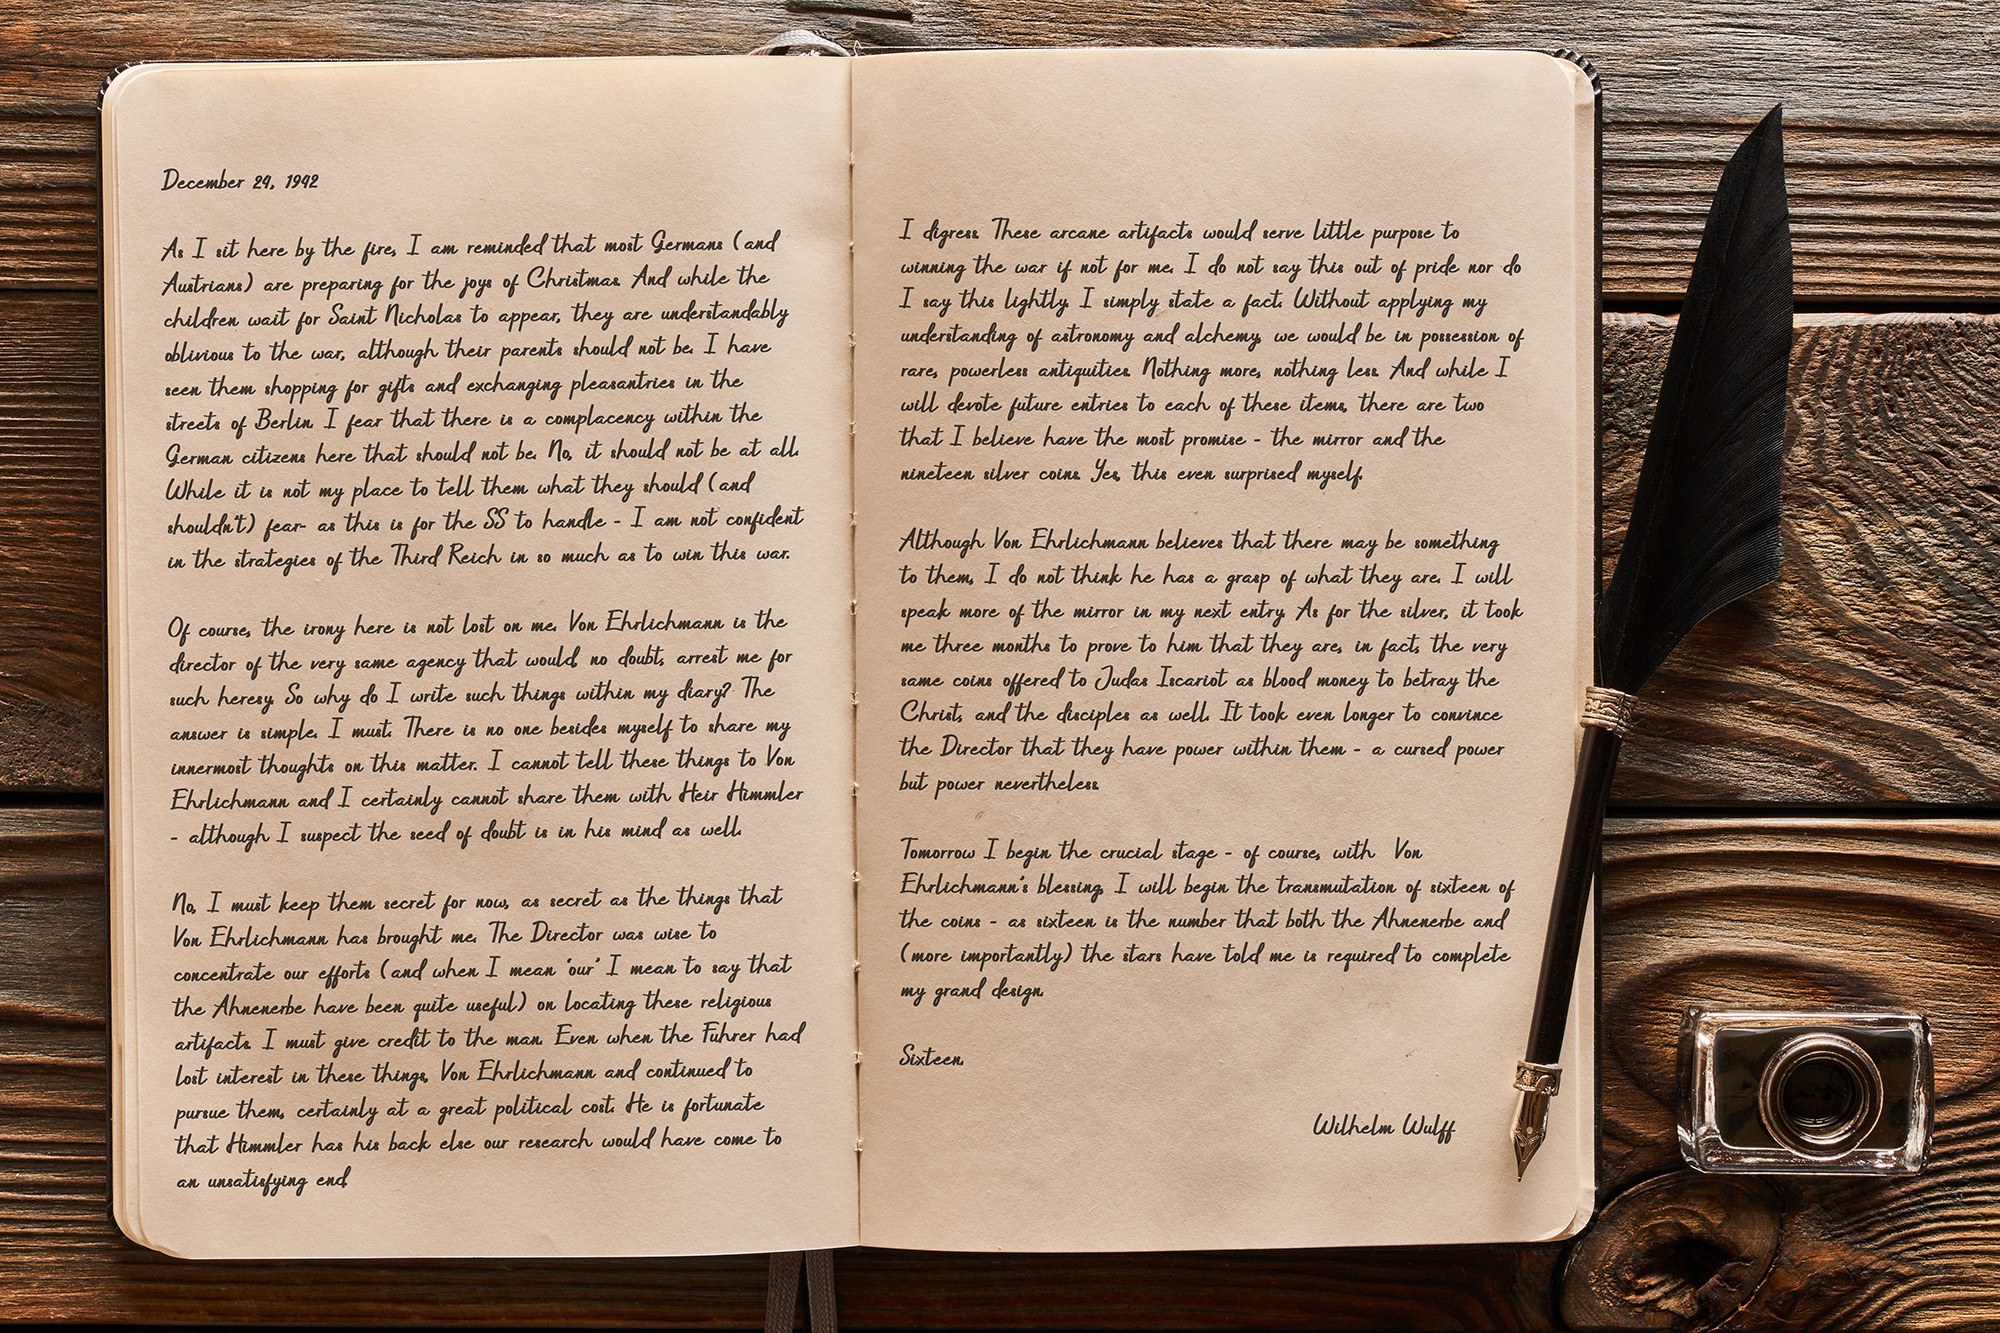 December 24, 1942
As I sit here by the fire, I am reminded that most Germans (and
Austrians) are preparing for the joys of Christmas. And while the
children wait for Saint Nicholas to appear, they are understandably
oblivious to the war, although their parents should not be. I have
seen them shopping for gifts and exchanging pleasantries in the
streets of Berlin. I fear that there is a complacency within the
German citizens here that should not be. No, it should not be at all.
While it is not my place to tell them what they should (and
shouldn't) fear- as this is for the SS to handle - I am not confident
in the strategies of the Third Reich in so much as to win this war.
Of course, the irony here is not lost on me. Von Ehrlichmann is the
director of the very same agency that would, no doubt, arrest me for
such heresy. So why do I write such things within my diary? The
answer is simple. I must. There is no one besides myself to share my
innermost thoughts on this matter. I cannot tell these things to Von
Ehrlichmann and I certainly cannot share them with Heir Himmler
- although I suspect the seed of doubt is in his mind as well.
No, I must keep them secret for now, as secret as the things that
Von Ehrlichmann has brought me. The Director was wise to
concentrate our efforts (and when I mean 'our' I mean to say that
the Ahnenerbe have been quite useful) on locating these religious
artifacts. I must give credit to the man. Even when the Fuhrer had
lost interest in these things, Von Ehrlichmann and continued to
pursue them, certainly at a great political cost. He is fortunate
that Himmler has his back else our research would have come to
an unsatisfying end.
I digress. These arcane artifacts would serve little purpose to
winning the war if not for me. I do not say this out of pride nor do
I say this lightly. I simply state a fact. Without applying my
understanding of astronomy and alchemy, we would be in possession of
rare, powerless antiquities. Nothing more, nothing less. And while I
will devote future entries to each of these items, there are two
that I believe have the most promise - the mirror and the
nineteen silver coins. Yes, this even surprised myself.
Although Von Ehrlichmann believes that there may be something
to them, I do not think he has a grasp of what they are. I will
speak more of the mirror in my next entry. As for the silver, it took
me three months to prove to him that they are, in fact, the very
same coins offered to Judas Iscariot as blood money to betray the
Christ, and the disciples as well. It took even longer to convince
the Director that they have power within them - a cursed power
but power nevertheless.
Tomorrow I begin the crucial stage - of course, with Von
Ehrlichmann's blessing, I will begin the transmutation of sixteen of
the coins - as sixteen is the number that both the Ahnenerbe and
(more importantly) the stars have told me is required to complete
my grand design.
Sixteen.
Wilhelm Wulff